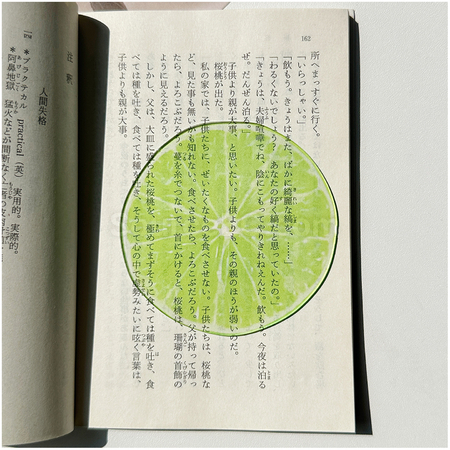 162
所へまっすぐに行く。
「いらっしゃい。」
「飲もう。きょうはまた、ばかに綺麗な縞を、……」
「わるくないでしょう？ あなたの好く縞だと思っていたの。」
「きょうは、夫婦喧嘩でね、陰にこもってやりきれねえんだ。飲もう。今夜は泊る
ぜ。だんぜん泊る。」
子供より親が大事、と思いたい。子供よりも、その親のほうが弱いのだ。
桜桃が出た。
私の家では、子供たちに、ぜいたくなものを食べさせない。子供たちは、桜桃な
ど、見た事も無いかも知れない。食べさせたら、よろこぶだろう。父が持って帰っ
たら、よろこぶだろう。蔓を糸でつないで、首にかけると、桜桃は、珊瑚の首飾の
ように見えるだろう。
しかし、父は、大皿に盛られた桜桃を、極めてまずそうに食べては種を吐き、食
べては種を吐き、食べては種を吐き、そうして心の中で虚勢みたいに呟く言葉は、
子供よりも親が大事。
注釈
人間失格
＊プラクテカル practical（英） 実用的。実際的。
＊阿鼻地獄 猛火などが間断なく